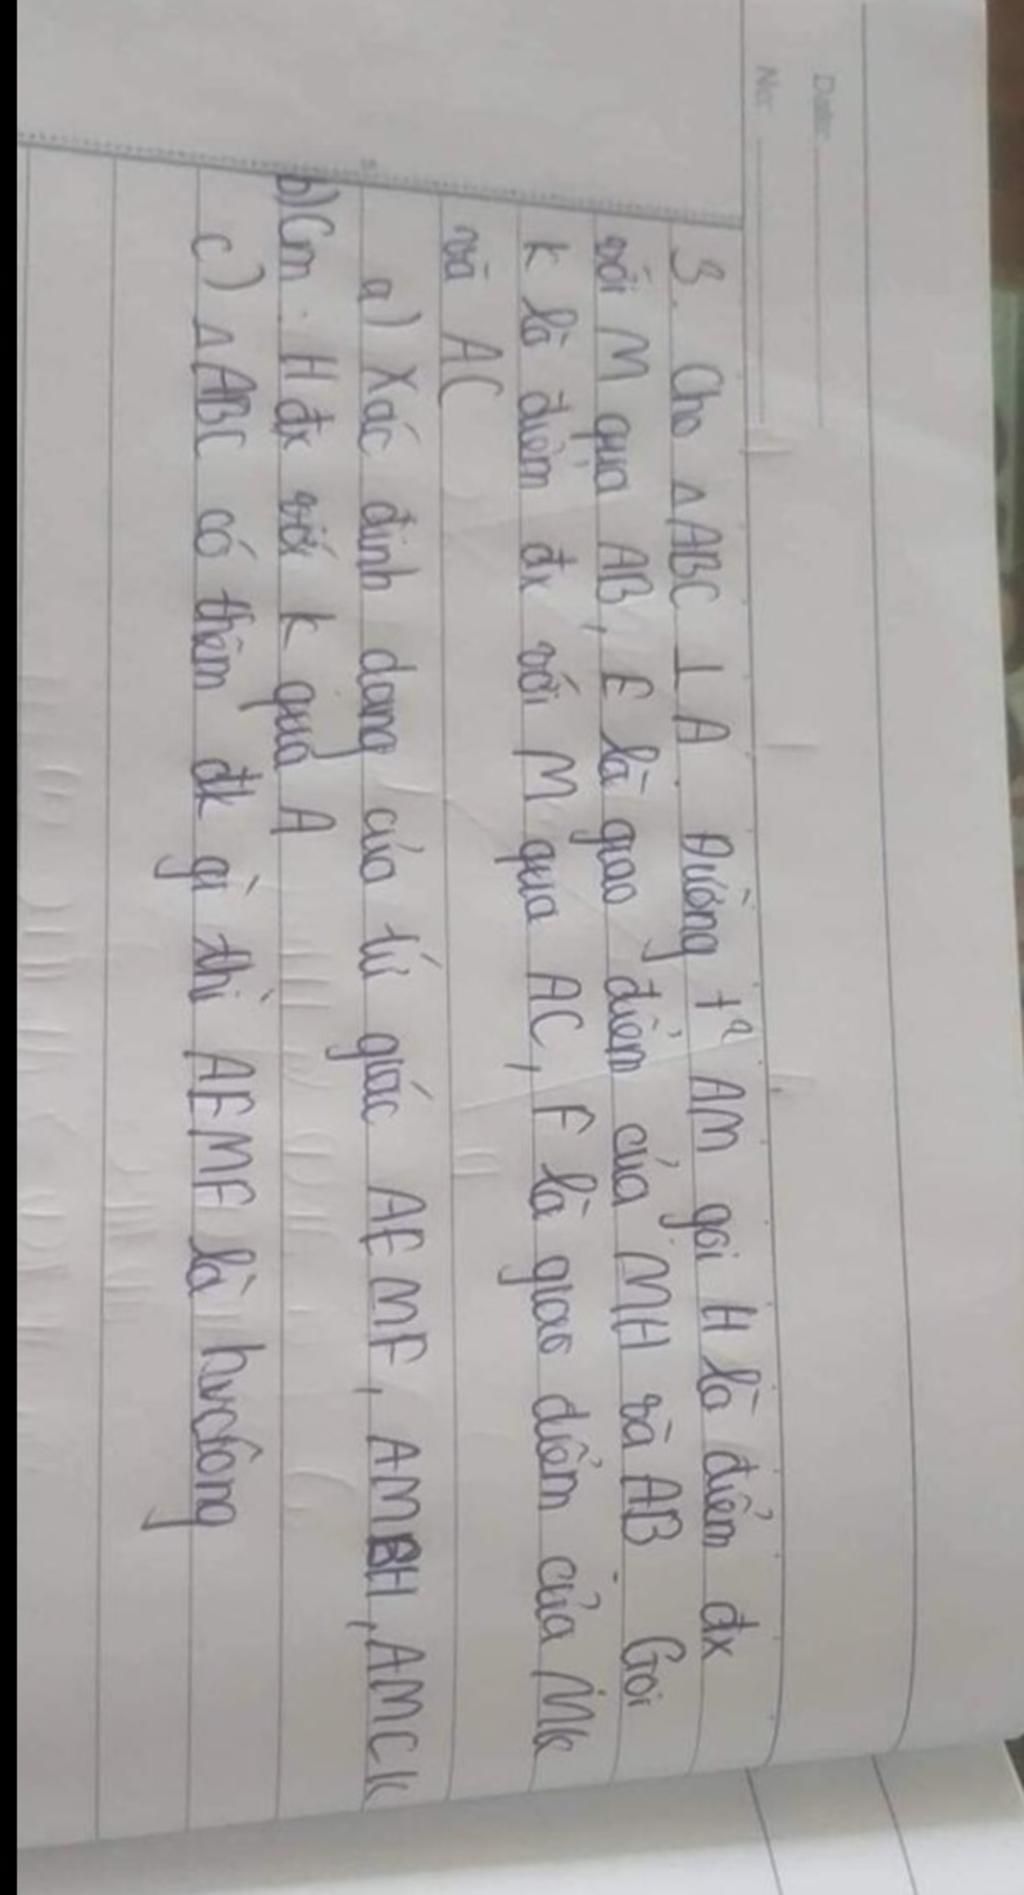 Date:
No:
3. Cho △ABC ⊥ A. Đường tᵃ AM gọi H là điểm đx
với M qua AB, E là giao điểm của MH và AB. Gọi
K là điểm đx với M qua AC, F là giao điểm của MK
và AC
a) Xác định dạng của tứ giác AEMF, AMBH, AMCK
b) Cm: H đx với K qua A
c) △ABC có thêm đk gì thì AEMF là hvdông